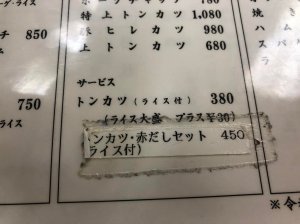 グ・ライス
チ 850
ス
750
ポークソテー 780
特上トンカツ 1,080
豚ヒレカツ 980
上トンカツ 680
サービス
トンカツ(ライス付) 380
(ライス大盛 プラス¥30)
ンカツ・赤だしセット 450
ライス付)
焼
ス
パ
※令